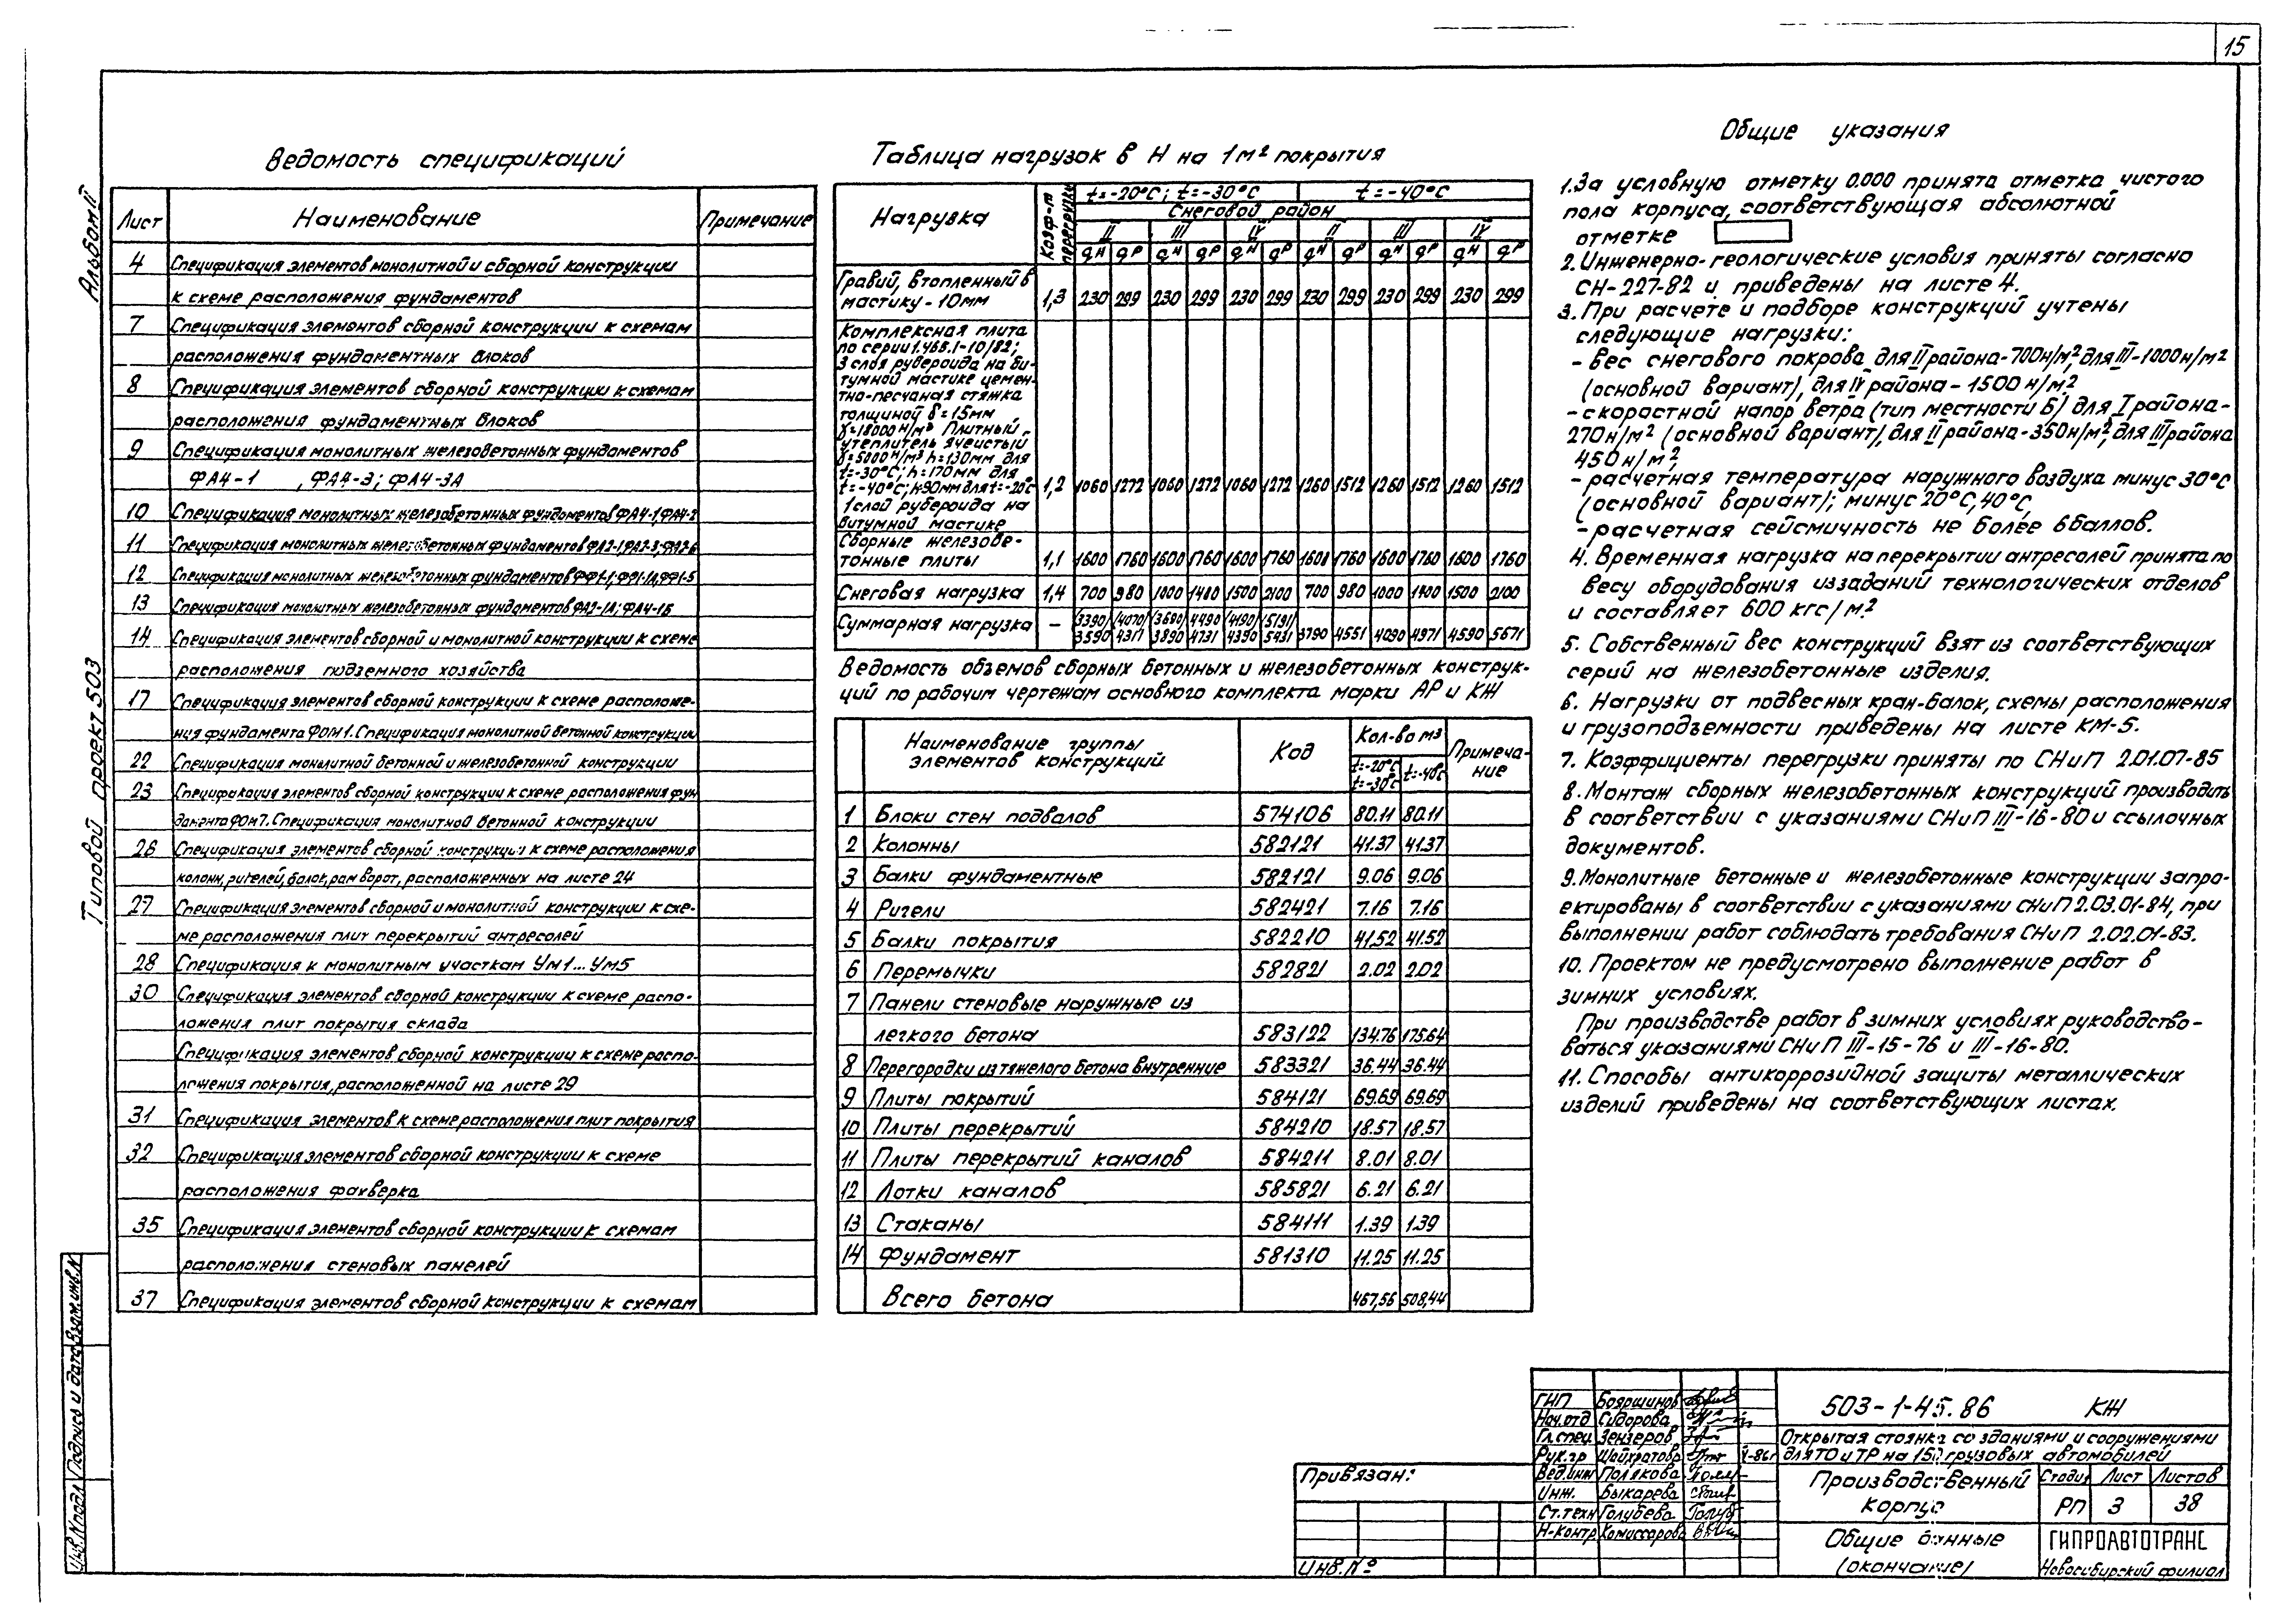 15
Альбом II
Типовой проект 503
Ведомость спецификаций
Лист Наименование Примечание
4 Спецификация элементов монолитной и сборной конструкции
к схеме расположения фундаментов
7 Спецификация элементов сборной конструкции к схемам
расположения фундаментных блоков
8 Спецификация элементов сборной конструкции к схемам
расположения фундаментных блоков
9 Спецификация монолитных железобетонных фундаментов
ФА4-1 , ФА4-3; ФА4-3А
10 Спецификация монолитных железобетонных фундаментов ФА4-1, ФА4-2
11 Спецификация монолитных железобетонных фундаментов ФА2-1, ФА2-3, ФА2-6
12 Спецификация монолитных железобетонных фундаментов ФФ1-1, ФФ1-1А, ФФ1-5
13 Спецификация монолитных железобетонных фундаментов ФА2-1А; ФА4-1Б
14 Спецификация элементов сборной и монолитной конструкции к схеме
расположения подземного хозяйства
17 Спецификация элементов сборной конструкции к схеме расположе-
ния фундамента ФОМ1. Спецификация монолитной бетонной конструкции
22 Спецификация монолитной бетонной и железобетонной конструкции
23 Спецификация элементов сборной конструкции к схеме расположения фун
дамента ФОМ7. Спецификация монолитной бетонной конструкции
26 Спецификация элементов сборной конструкции к схеме расположения
колонн, ригелей, балок, рам ворот, расположенных на листе 24
27 Спецификация элементов сборной и монолитной конструкции к схе-
ме расположения плит перекрытий антресолей
28 Спецификация к монолитным участкам Ум1... Ум5
30 Спецификация элементов сборной конструкции к схеме распо-
ложения плит покрытия склада
Спецификация элементов сборной конструкции к схеме распо-
ложения покрытия, расположенной на листе 29
31 Спецификация элементов к схеме расположения плит покрытия
32 Спецификация элементов сборной конструкции к схеме
расположения фахверка
35 Спецификация элементов сборной конструкции к схемам
расположения стеновых панелей
37 Спецификация элементов сборной конструкции к схемам
Таблица нагрузок в Н на 1м² покрытия
Нагрузка Коэф-т перегрузки t=-20°С; t=-30°С t=-40°С
Снеговой район
II III IV II III IV
qН qР qН qР qН qР qН qР qН qР qН qР
Гравий, втопленный в
мастику-10мм 1,3 230 299 230 299 230 299 230 299 230 299 230 299
Комплексная плита
по серии 1.465.1-10/82;
3 слоя рубероида на би-
тумной мастике цемен-
тно-песчаная стяжка
толщиной δ=15мм
γ=18000 Н/м³ Плитный
утеплитель ячеистый
γ=5000 Н/м³ h=130мм для
t=-30°С; h=170мм для
t=-40°С; h=90мм для t=-20°С 1,2 1060 1272 1060 1272 1060 1272 1260 1512 1260 1512 1260 1512
1 слой рубероида на
битумной мастике
Сборные железобе-
тонные плиты 1,1 1600 1760 1600 1760 1600 1760 1600 1760 1600 1760 1600 1760
Снеговая нагрузка 1,4 700 980 1000 1400 1500 2100 700 980 1000 1400 1500 2100
Суммарная нагрузка - (3390) (4070) (3690) (4490) (4190) (5191)
3590 4317 3890 4731 4390 5431 3790 4551 4090 4971 4590 5671
Ведомость объемов сборных бетонных и железобетонных конструк-
ций по рабочим чертежам основного комплекта марки АР и КЖ
Наименование группы элементов конструкций Код Кол-во м3 Примеча-ние
t=-20°С t=-30°С t=-40°С
1 Блоки стен подвалов 574106 80.11 80.11
2 Колонны 582121 41.37 41.37
3 Балки фундаментные 582121 9.06 9.06
4 Ригели 582421 7.16 7.16
5 Балки покрытия 582210 41.52 41.52
6 Перемычки 582821 2.02 2.02
7 Панели стеновые наружные из
легкого бетона 583122 134.76 175.64
8 Перегородки из тяжелого бетона внутренние 583321 36.44 36.44
9 Плиты покрытий 584121 69.69 69.69
10 Плиты перекрытий 584210 18.57 18.57
11 Плиты перекрытий каналов 584211 8.01 8.01
12 Лотки каналов 585821 6.21 6.21
13 Стаканы 584111 1.39 1.39
14 Фундамент 581310 11.25 11.25
Всего бетона 467,56 508,44
Общие указания
1. За условную отметку 0.000 принята отметка чистого
пола корпуса, соответствующая абсолютной
отметке
2. Инженерно-геологические условия приняты согласно
СН-227-82 и приведены на листе 4.
3. При расчете и подборе конструкций учтены
следующие нагрузки:
- вес снегового покрова для II района-700н/м², для III-1000н/м²
(основной вариант), для IV района-1500 н/м²
- скорастной напор ветра (тип местности Б) для I района-
270н/м² (основной вариант), для II района-350н/м², для III района
450н/м²,
- расчетная температура наружного воздуха минус 30°С
(основной вариант); минус 20°С, 40°С,
- расчетная сейсмичность не более 6 баллов.
4. Временная нагрузка на перекрытии антресолей принята по
весу оборудования из заданий технологических отделов
и составляет 600 кгс/м²
5. Собственный вес конструкций взят из соответствующих
серий на железобетонные изделия.
6. Нагрузки от подвесных кран-балок, схемы расположения
и грузоподъемности приведены на листе КМ-5.
7. Коэффициенты перегрузки приняты по СНиП 2.01.07-85
8. Монтаж сборных железобетонных конструкций производить
в соответствии с указаниями СНиП III-16-80 и ссылочных
документов.
9. Монолитные бетонные и железобетонные конструкции запро-
ектированы в соответствии с указаниями СНиП 2.03.01-84, при
выполнении работ соблюдать требования СНиП 2.02.01-83.
10. Проектом не предусмотрено выполнение работ в
зимних условиях.
При производстве работ в зимних условиях руководство-
ваться указаниями СНиП III-15-76 и III-16-80.
11. Способы антикоррозийной защиты металлических
изделий приведены на соответствующих листах.
Инв.N подл Подпись и дата Взам.инв.N
Привязан:
Инв.№
ГИП Бояршинов
Нач.отд Сидорова
Гл.спец Зензеров
Рук.гр Шайхратова
Вед.инж Полякова
Инж. Быкарева
Ст.техн Голубева
Н-контр Комиссарова
503-1-45.86 КЖ
Открытая стоянка со зданиями и сооружениями
для ТО и ТР на 150 грузовых автомобилей
Производственный корпус
Стадия Лист Листов
РП 3 38
Общие данные
(окончание)
ГИПРОАВТОТРАНС
Новосибирский филиал